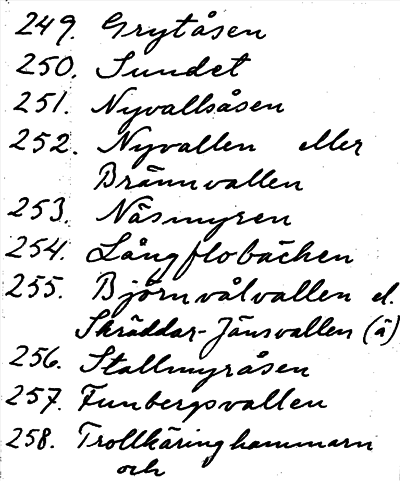 249. Grytåsen
250. Sundet
251. Nyvallsåsen
252. Nyvallen eller
Brännvallen
253. Näsmyren
254. Långflobäcken
255. Björnvålvallen el.
Skräddar-Jänsvallen (ä)
256. Stallmyråsen
257. Funbergsvallen
258. Trollkäringhammarn
och